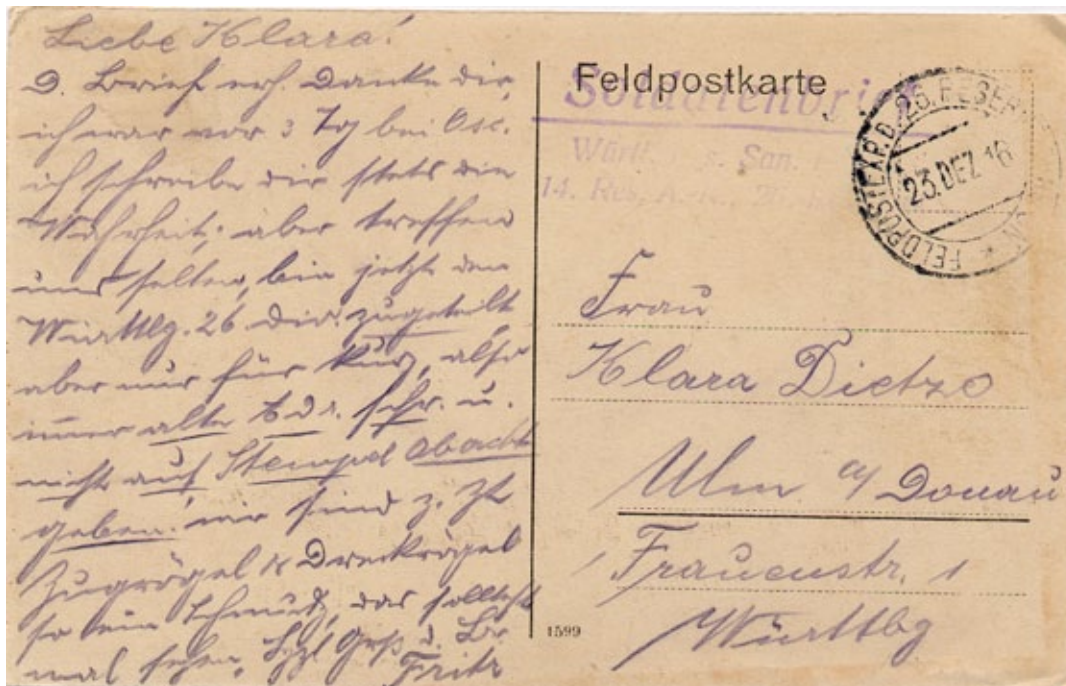 Liebe Klara!
D. Brief erh. Danke dir,
ich war vor 3 Tg bei Osc.
ich schreibe dir stets die
Wahrheit; aber treffen
uns selten, bin jetzt den
Württbg. 26. Div. zugeteilt
aber nur für kurz, also
immer alte Adr. schr. u.
nicht auf Stempel obacht
geben! wir sind z. Zt
Zugvögel & Dreckvögel
so ein Schmutz, das solltest
mal sehen. Hzl Grß d. Br.
Fritz
Feldpostkarte
Soldatenbrief
Württ. s. San.
14. Res. A.-K.,
FELDPOSTEXP. D. 25. RESER
23. DEZ 16
Frau
Klara Dietze
Ulm a/ Donau
Frauenstr. 1
Württbg
1599